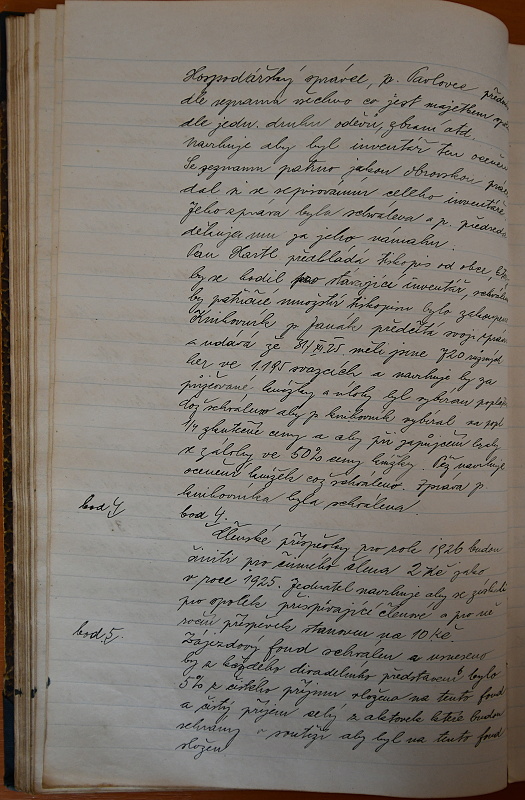 Hospodářský správce, p. Pavlovec
dle seznamu všechno co jest majetkem
dle jedn. druhu oděvů, zbraní atd.
navrhuje aby byl inventář ten oceněn
Se seznamu patrno jakou obrovskou práci
dal si se sepisováním celého inventáře.
Jeho zpráva byla schválena a p. předseda
děkuje mu za jeho námahu.
Pan Hartl předkládá tiskopis od obce
by se hodil stávající inventář,
by patřičné množství tiskopisů bylo zakoupeno
Knihovník p. Janák předčítá svoji zprávu
a udává že 31/XII.25. měli jsme 720 různých
her ve 1.195 svazcích a navrhuje by za
půjčované knížky a úlohy byl vybírán poplatek
což schváleno aby p. knihovník vybíral
1% skutečné ceny a aby při zapůjčení
x zálohy ve 50% ceny knížky. Též navrhuje
ocenění knížek což schváleno. Zpráva p.
knihovníka byla schválena.
bod 4. bod 4.
Členské příspěvky pro rok 1926 budou
činiti pro činného člena 2 Kč jako
v roce 1925. Jednatel navrhuje aby se získali
pro spolek přispívající členové a pro ně
roční příspěvek stanoven na 10 Kč.
bod 5. Zájezdový fond schválen a usneseno
by z každého divadelního představení bylo
5% z čistého příjmu vloženo na tento fond
a čistý příjem celý z aktovek které budou
sehrány v soutěži aby byl na tento fond
vložen